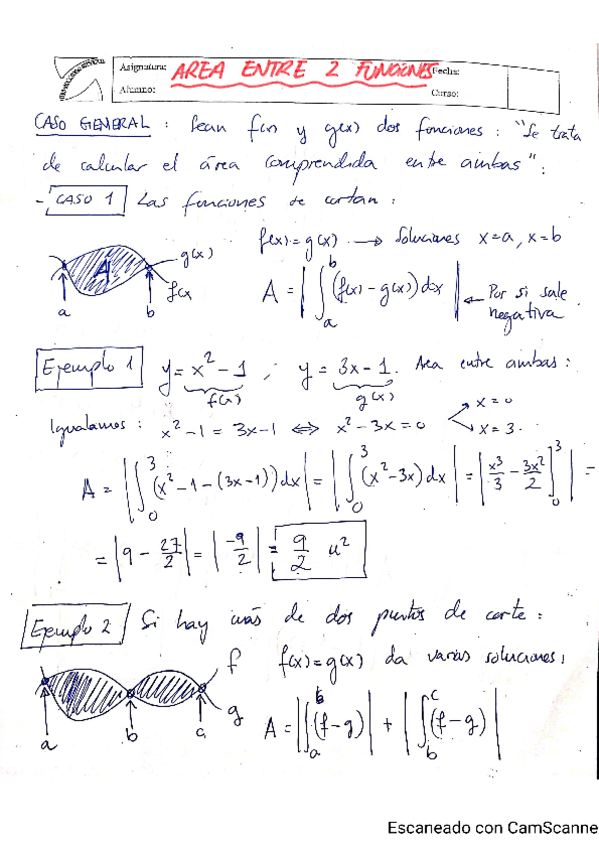 Asignatura: AREA ENTRE 2 FUNCIONES Fecha:
Alumno: Curso:
CASO GENERAL : Sean f(x) y g(x) dos funciones : "Se trata
de calcular el área comprendida entre ambas" :
- CASO 1 Las funciones se cortan :
f(x) = g(x) → Soluciones x=a, x=b
A g(x)
f(x
a b
A = | ∫_a^b (f(x) - g(x)) dx | ← Por si sale
negativa.
Ejemplo 1 y = x² - 1 ; y = 3x - 1. Area entre ambas :
f(x) g(x)
Igualamos : x² - 1 = 3x - 1 ⇔ x² - 3x = 0 x = 0
x = 3.
A = | ∫_0^3 (x² - 1 - (3x - 1)) dx | = | ∫_0^3 (x² - 3x) dx | = | x³/3 - 3x²/2 ]_0^3 | =
= | 9 - 27/2 | = | -9/2 | = 9/2 u²
Ejemplo 2 Si hay más de dos puntos de corte :
f f(x) = g(x) da varias soluciones,
g
a b c
A = | ∫_a^b (f - g) | + | ∫_b^c (f - g) |
Escaneado con CamScanne